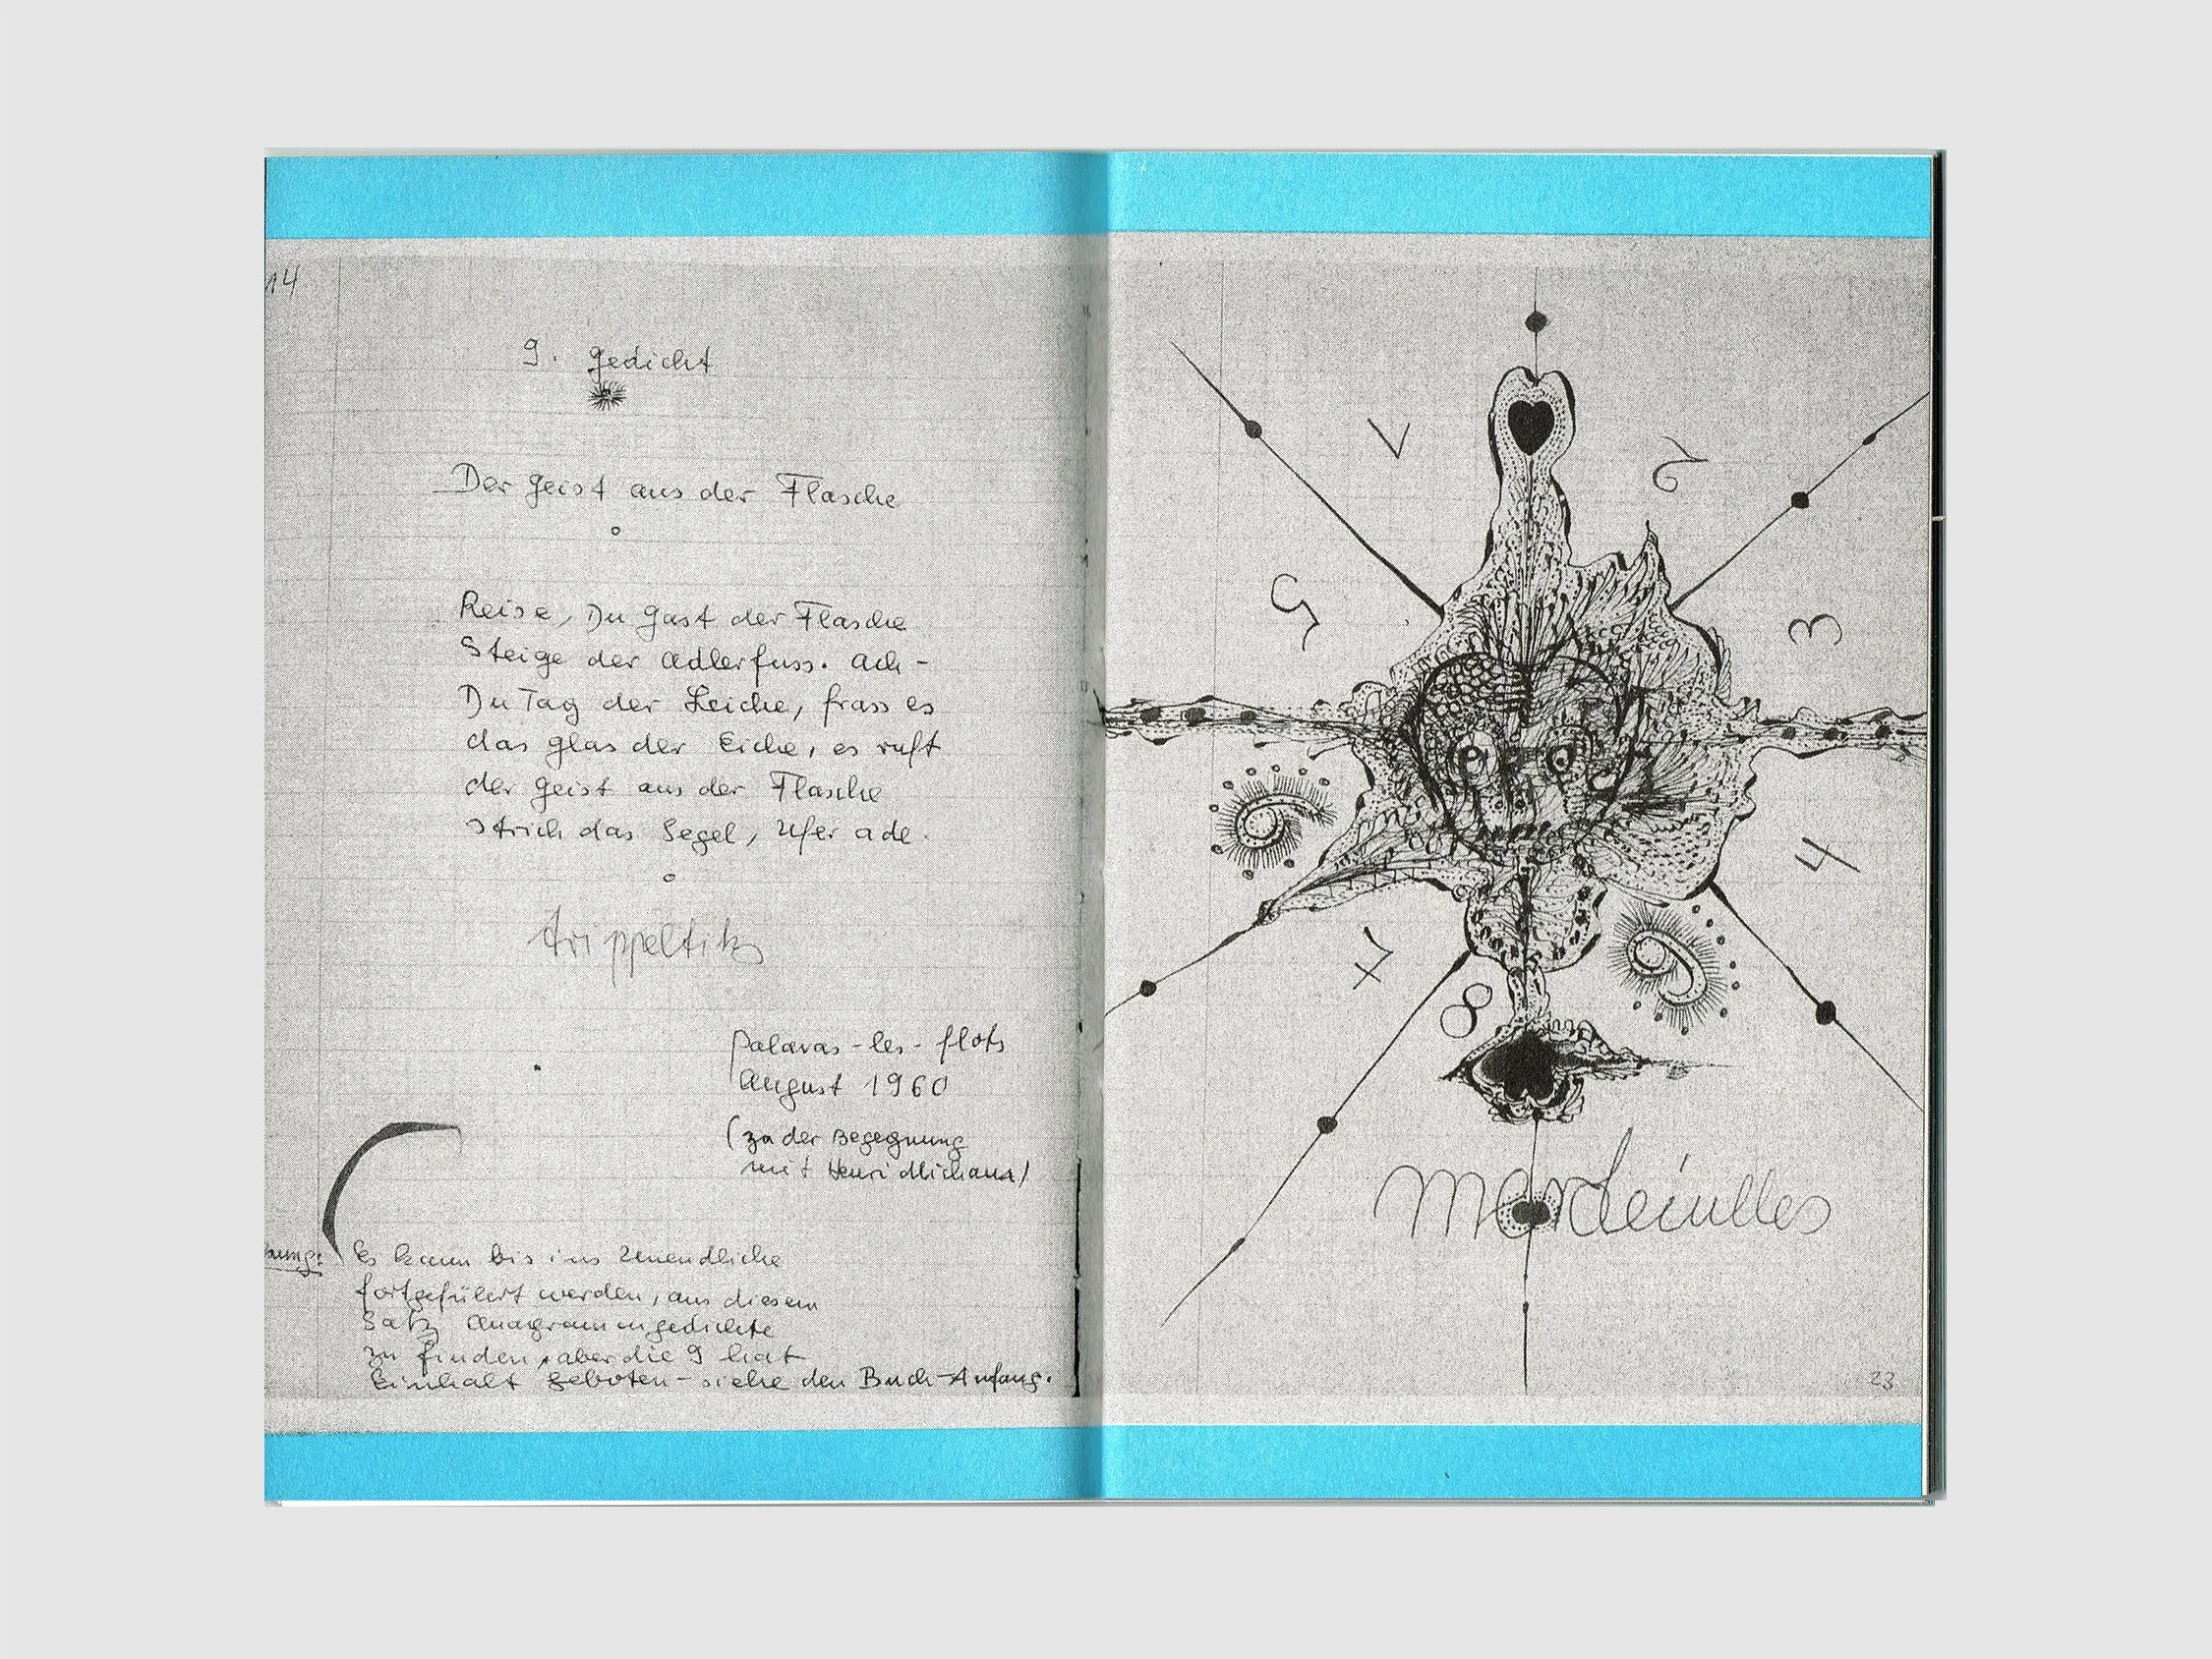 14
9. Gedicht
Der Geist aus der Flasche
Reise, Du Gast der Flasche
Steige der Adlerfuss. Ach -
Du Tag der Leiche, frass es
das Glas der Eiche, es ruft
der Geist aus der Flasche
strich das Segel, Ufer ade.
Palavas-les-flots
August 1960
(zu der Begegnung
mit Henri Michaux)
Es kann bis ins Unendliche
fortgeführt werden, aus diesem
Satz Anagrammgedichte
zu finden, aber die 9 hat
Einhalt geboten - siehe den Buch-Anfang.
1
2
5
3
9
4
7
9
8
23